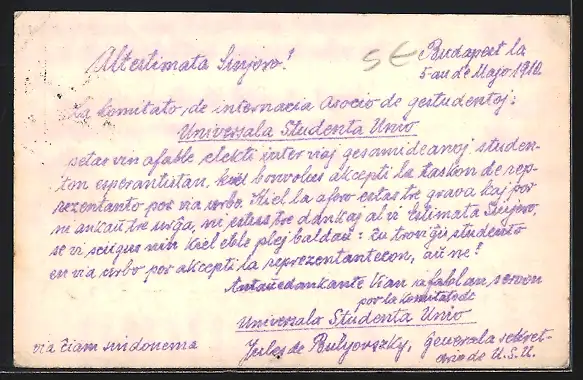 Altestimata Sinjoro!
SE
Budapest la
5-an de Majo 1910
La komitato de internacia Asocio de gestudentoj:
Universala Studenta Unio
vin afable elekti inter viaj gesamideanoj studen-
ton esperantistan, kiel bonvolus akcepti la taskon de rep-
rezentanto por via urbo. Kiel la afero estas tre grava kaj por
ni ankaŭ tre urĝa, ni estus tre dankaj al vi Estimata Sinjoro,
se vi sciigus nin kiel eble plej baldaŭ: ĉu troviĝis studento
en via urbo por akcepti la reprezentantecon, aŭ ne?
Antaŭedankante Vian afablan servon
por la komitato de
Universala Studenta Unio
via ĉiam sindonema
Jules de Bulyovszky, Generala sekret-
ario de U.S.U.